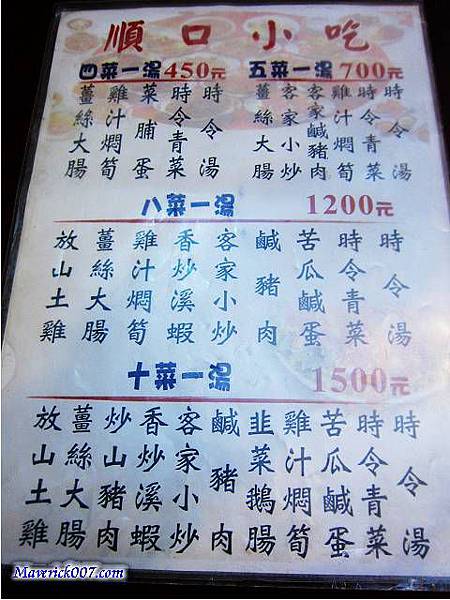 順口小吃
四菜一湯 450元
薑絲大腸
雞汁燜筍
菜脯蛋
時令青菜
時令湯
五菜一湯 700元
薑絲大腸
客家小炒
客家鹹豬肉
雞汁燜筍
時令青菜
時令湯
八菜一湯 1200元
放山土雞
薑絲大腸
雞汁燜筍
香炒溪蝦
客家小炒
鹹豬肉
苦瓜鹹蛋
時令青菜
時令湯
十菜一湯 1500元
放山土雞
薑絲大腸
炒山豬肉
香炒溪蝦
客家小炒
鹹豬肉
韭菜鵝腸
雞汁燜筍
苦瓜鹹蛋
時令青菜
時令湯
Maverick007.com